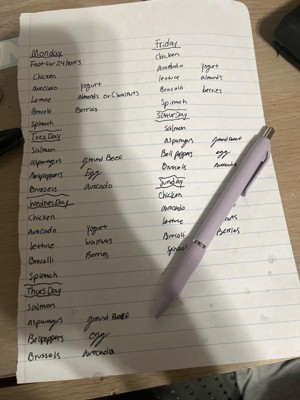 Monday
Fast for 24 hours
Chicken
avocado yogurt
Lettuce Almonds or (walnuts
Brocolli Berries
Spinach
TuesDay
Salmon
asparagus ground BEEF
Bellpeppers Egg
Brussels avocado
WednesDay
Chicken
avocado yogurt
lettuce walnuts
Brocolli Berries
Spinach
ThursDay
Salmon
Asparagus ground BEEF
Bellpeppers egg
Brussels Avocado
Friday
Chicken
avocado yogurt
lettuce almonds
Brocolli berries
Spinach
Salmon
asparagus ground
Bell peppers egg
Brussels
Sunday
Chicken
avocado
lettuce nuts
Brocolli Berries